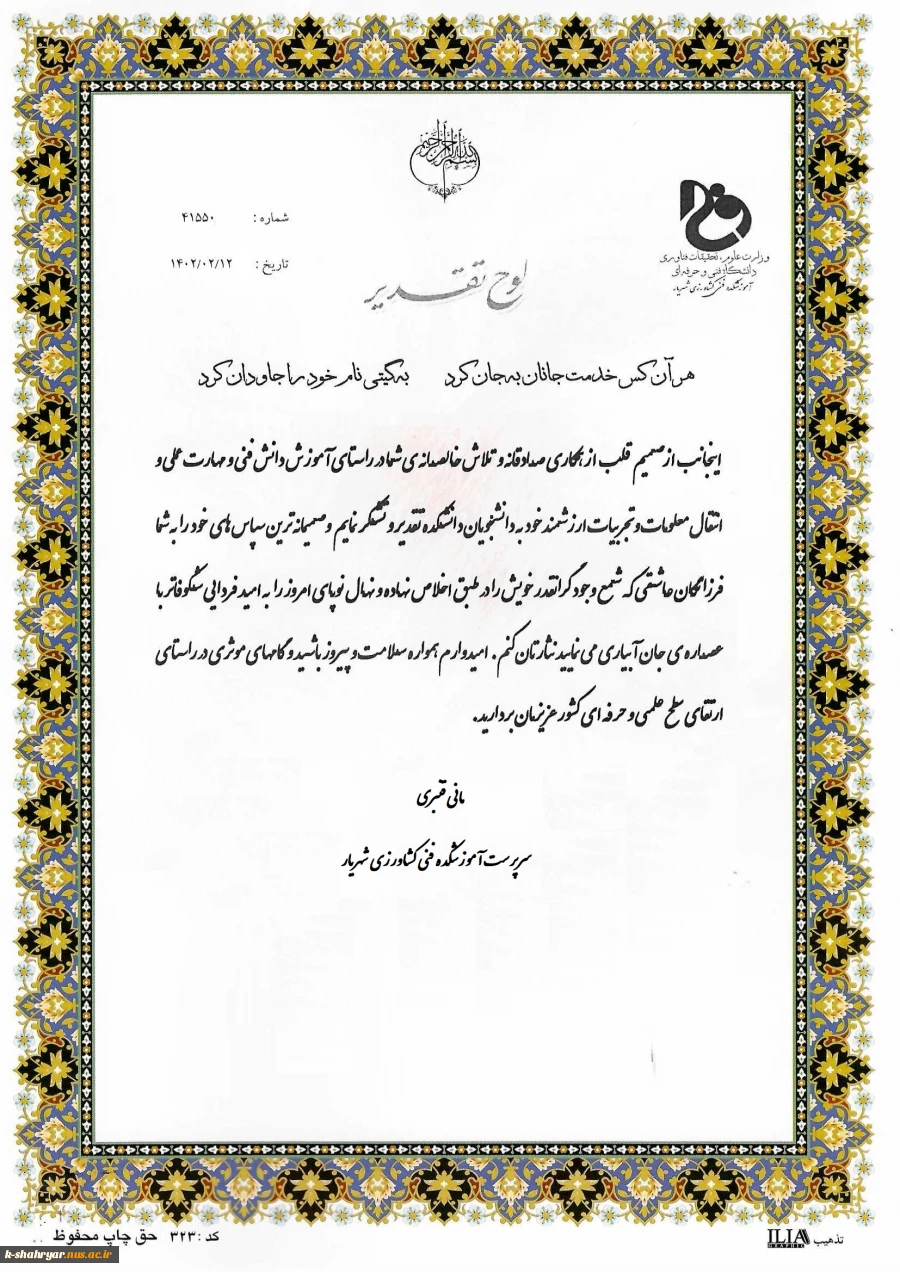 بسم الله الرحمن الرحیم
وزارت علوم، تحقیقات فناوری
دانشگاه فنی و حرفه ای
آموزشکده فنی کشاورزی شهریار
شماره : ۴۱۵۵۰
تاریخ : ۱۴۰۲/۰۲/۱۲
لوح تقدیر
هر آن کس خدمت جانان به جان کرد به گیتی نام خود را جاودان کرد
اینجانب از صمیم قلب از همکاری صداوقانه و تلاش خالصانه ی شما در راستای آموزش دانش فنی و مهارت عملی و
انتقال معلومات و تجربیات ارزشمند خود به دانشجویان دانشکده تقدیر و تشکر نمایم و صمیمانه ترین سپاس های خود را به شما
فرزانگان عاشقی که شمع وجود گرانقدر خویش را در طبق اخلاص نهاده و نهال نوپای امروز را به امید فردایی شکوفاتر با
عصاره ی جان آبیاری می نمایید نثارتان کنم . امیدوارم همواره سلامت و پیروز باشید و گامهای موثری در راستای
ارتقای سطح علمی و حرفه ای کشور عزیزمان بردارید.
مانی قنبری
سرپرست آموزشکده فنی کشاورزی شهریار
تذهیب ILIA GRAPHIC
کد : ۳۲۳ حق چاپ محفوظ
k-shahryar.nus.ac.ir